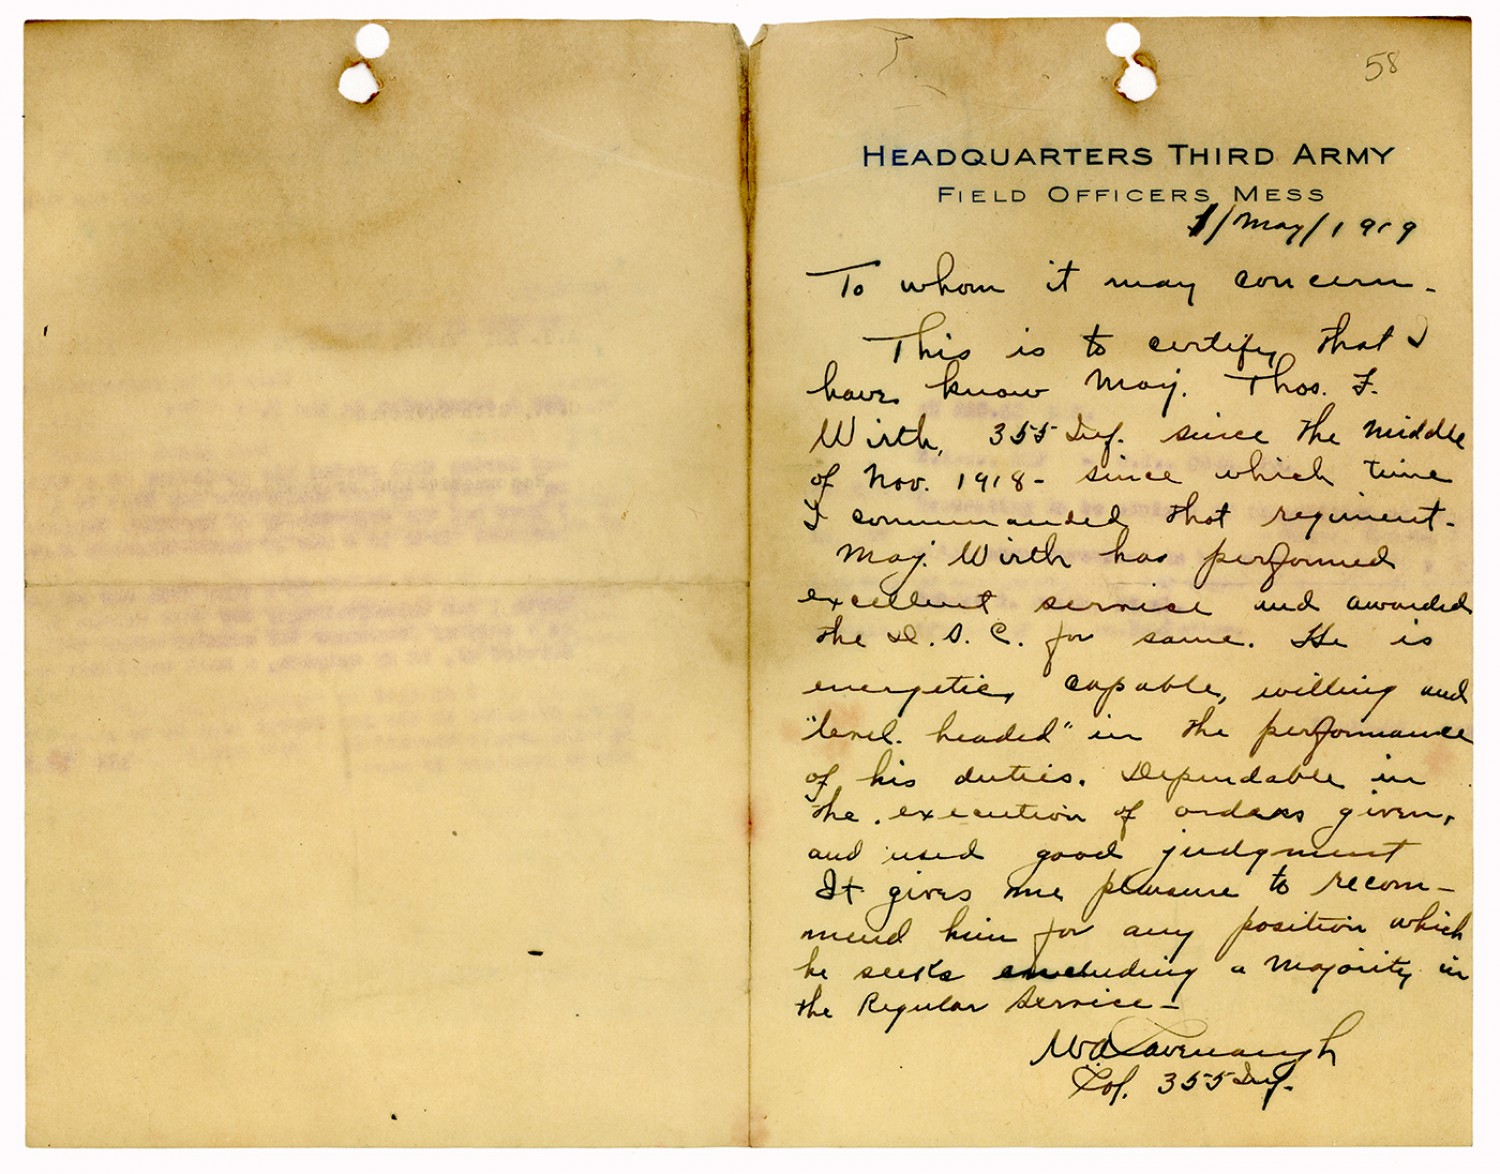 58
HEADQUARTERS THIRD ARMY
FIELD OFFICERS MESS
1/May/1919
To whom it may concern -
This is to certify that I
have know Maj. Thos. F.
Wirth, 355 Inf. since the middle
of Nov. 1918 - since which time
I commanded that regiment -
Maj. Wirth has performed
excellent service and awarded
the D.S.C. for same. He is
energetic, capable, willing and
"level headed" in the performance
of his duties. Dependable in
the execution of orders given,
and used good judgment
It gives me pleasure to recom-
mend him for any position which
he seeks including a Majority in
the Regular Service -
W.A. Cavenaugh
Col. 355 Inf.